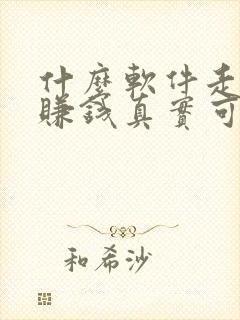 什麼軟件走
賺錢真實可
和希沙